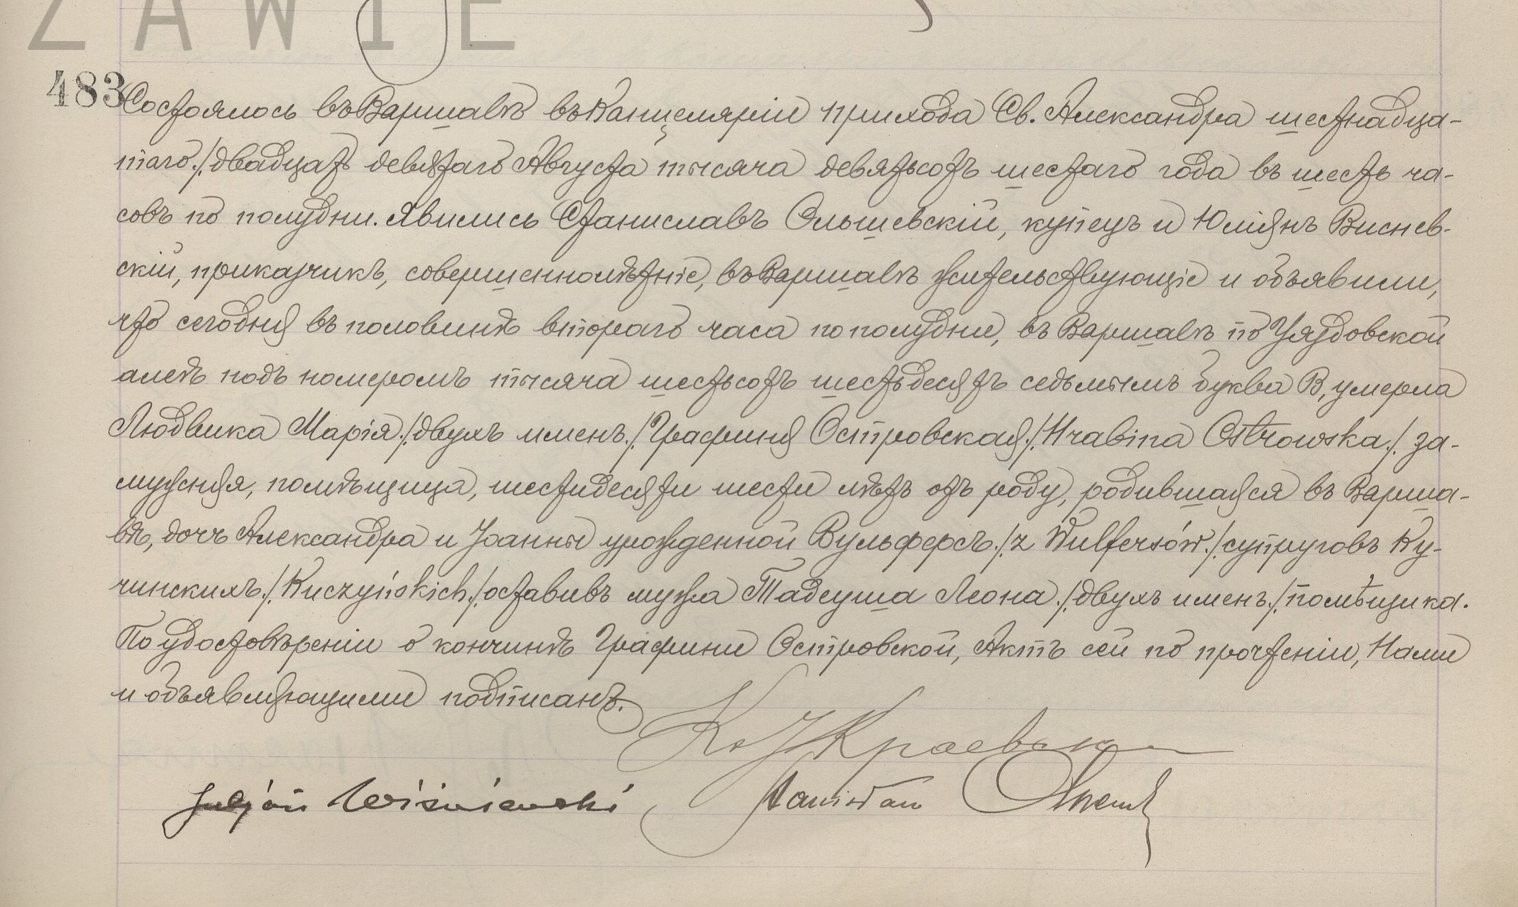 ZAWIE
483
Состоялось въ Варшавѣ въ Канцеляріи прихода Св. Александра шестнадца-
таго /двадцать девятаго/ Августа тысяча девятьсотъ шестаго года въ шесть ча-
совъ по полудни. Явились Станиславъ Ольшевскій, купецъ и Юліянъ Виснев-
скій, приказчикъ, совершеннолѣтніе, въ Варшавѣ жительствующіе и объявили,
что сегодня въ половинѣ втораго часа по полудни, въ Варшавѣ по Уяздовской
алеѣ подъ номеромъ тысяча шестьсотъ шестьдесятъ седьмымъ буква В, умерла
Людвика Марія /двухъ именъ/ Графиня Островская /Hrabina Ostrowska/ за-
мужняя, помѣщица, шестидесяти шести лѣтъ отъ роду, родившаяся въ Варша-
вѣ, дочь Александра и Іоанны урожденной Вульферсъ /z Wulfersów/ супруговъ Ку-
чинскихъ /Kuczyńskich/ оставивъ мужа Тадеуша Леона /двухъ именъ/ помѣщика.
По удостовѣреніи о кончинѣ Графини Островской, Актъ сей по прочтеніи, Нами
и объявляющими подписанъ.
Julјan Wiśniewski Stanisław